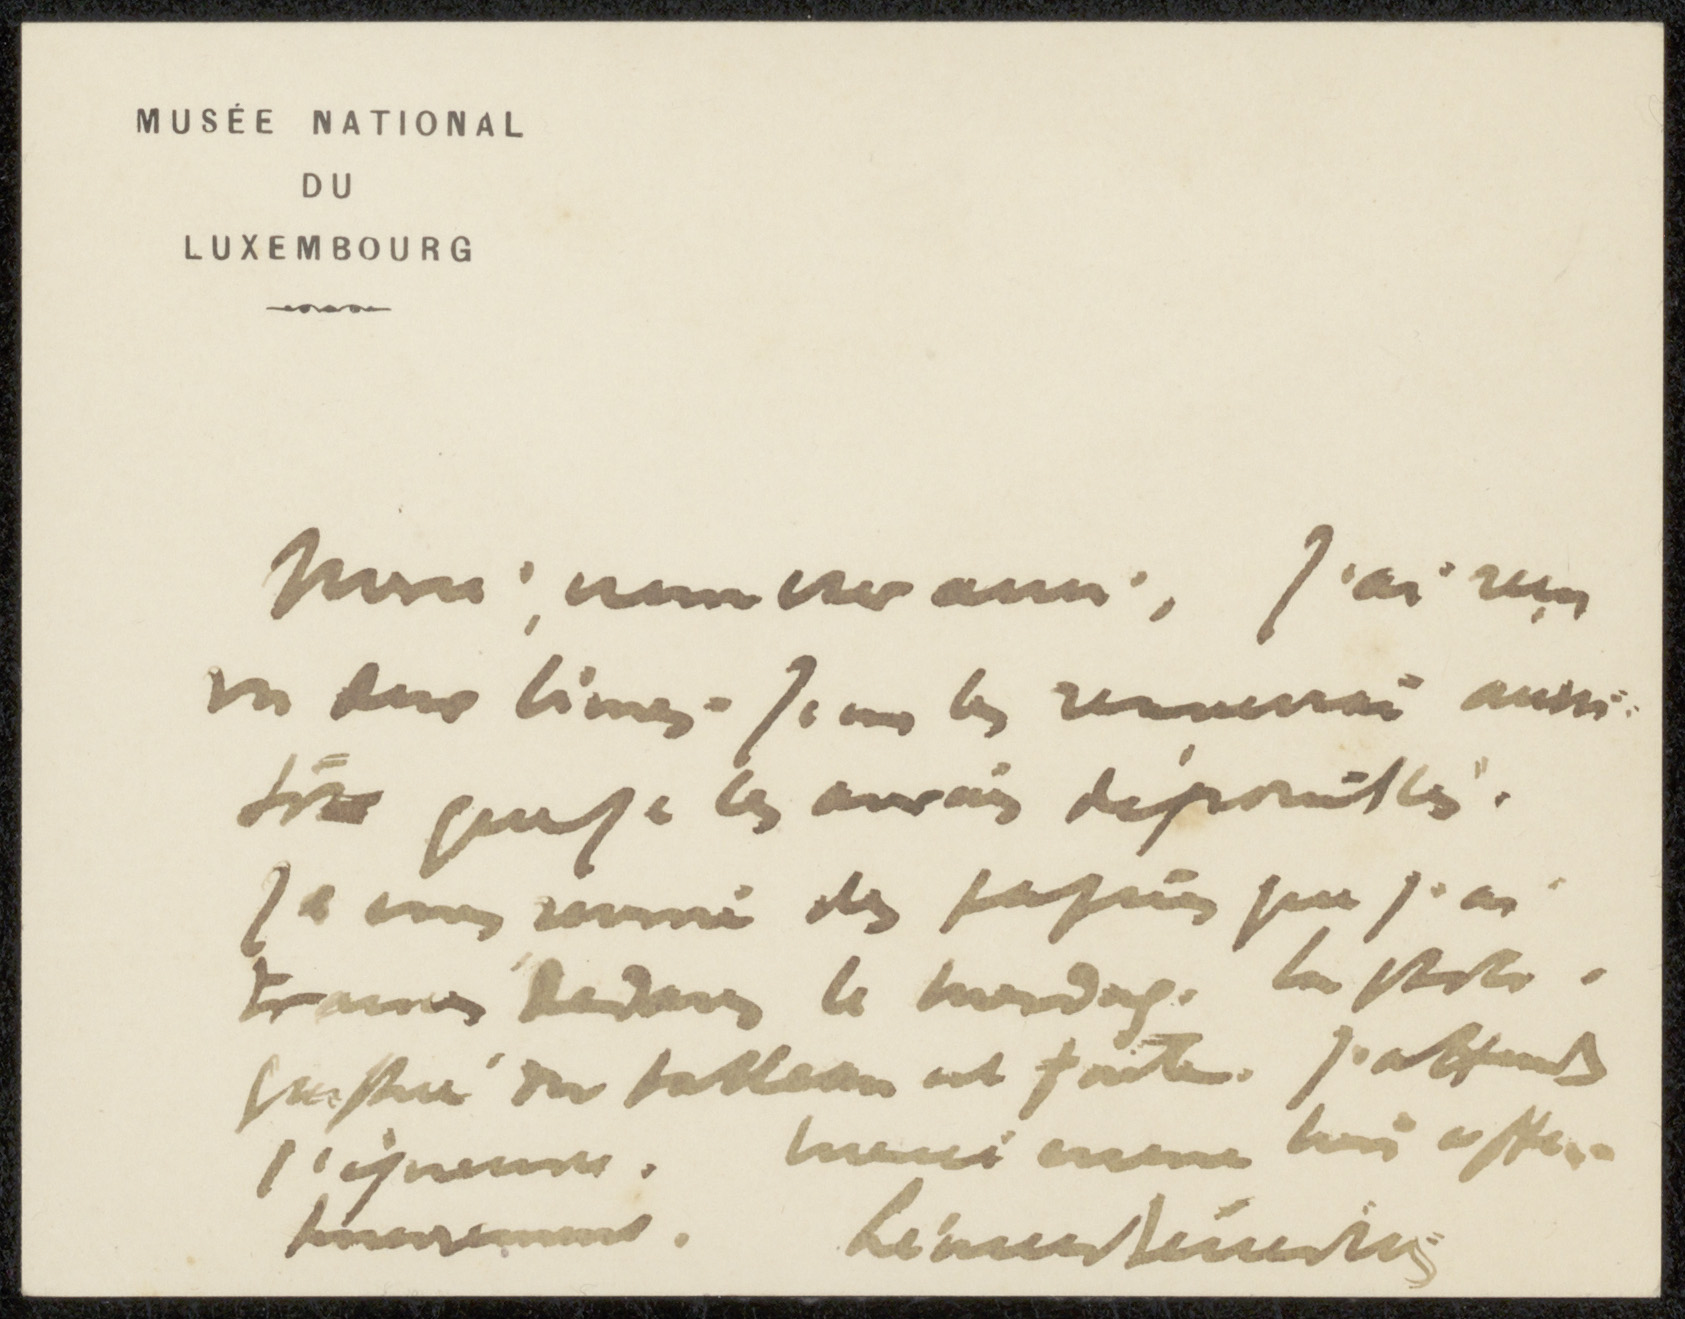 MUSÉE NATIONAL
DU
LUXEMBOURG
Merci, mon cher ami, J'ai reçu
vos deux livres. Je vous les renverrai aussi-
tôt que je les aurais dépouillés.
Je vous renvoie des papiers que j'ai
trouvés dedans le . La photo-
graphie du tableau est faite. J'attends
l'épreuve. Merci encore bien affec-
tueusement. Léonce Bénédite